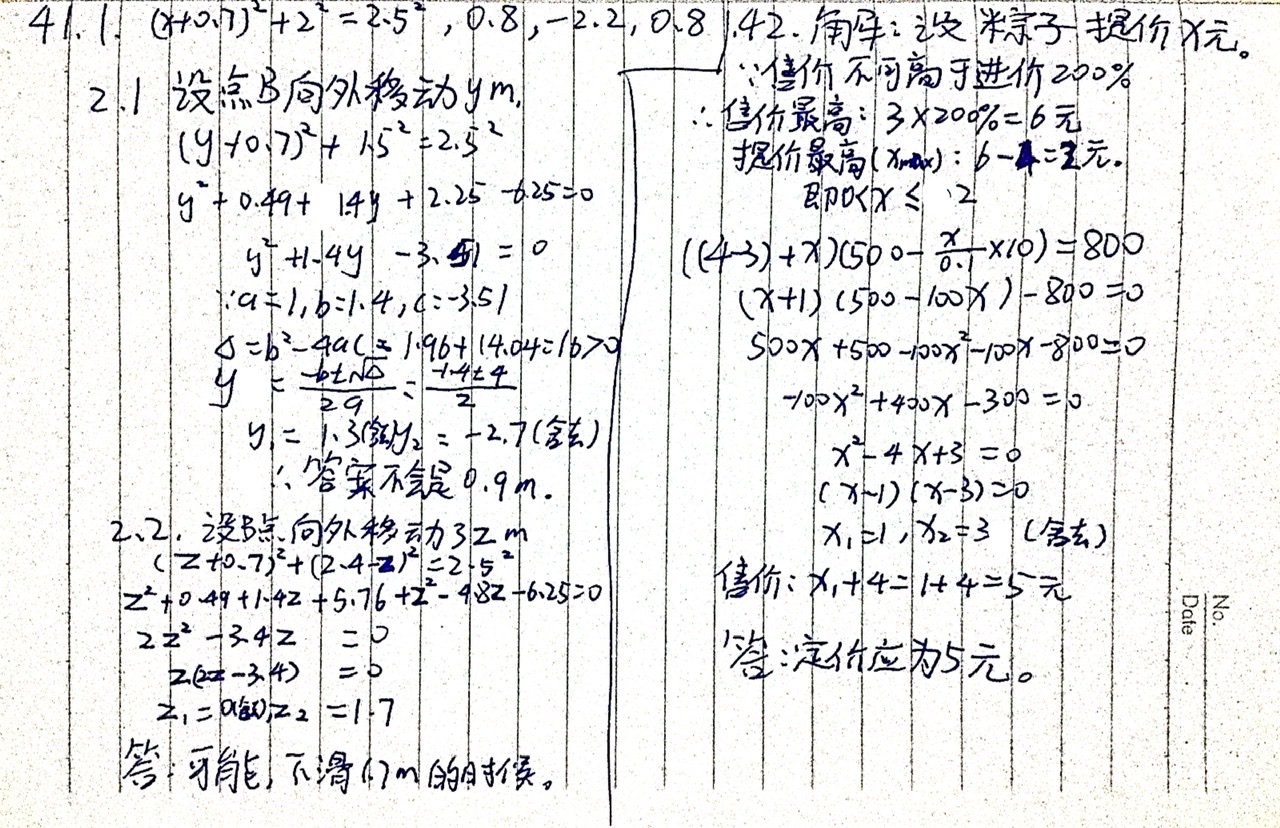 41.1. (x+0.7)²+2²=2.5², 0.8, -2.2, 0.8
2.1 设点B向外移动ym,
(y+0.7)²+1.5²=2.5²
y²+0.49+1.4y+2.25-6.25=0
y²+1.4y-3.51=0
∵a=1,b=1.4,c=-3.51
Δ=b²-4ac=1.96+14.04=16>0
y=(-b±√Δ)/2a=(-1.4±4)/2
y₁=1.3 y₂=-2.7(舍去)
∴答案不会是0.9m.
2.2. 设B点向外移动了zm
(z+0.7)²+(2.4-z)²=2.5²
z²+0.49+1.4z+5.76+z²-4.8z-6.25=0
2z²-3.4z=0
z(2z-3.4)=0
z₁=0(舍去),z₂=1.7
答:可能,下滑1.7m的时候。
42. 解:设粽子提价x元。
∵售价不可高于进价200%
∴售价最高:3×200%=6元
提价最高(xmax):6-4=2元.
即0<x≤2
((4-3)+x)(500-x/0.1×10)=800
(x+1)(500-100x)-800=0
500x+500-100x²-100x-800=0
-100x²+400x-300=0
x²-4x+3=0
(x-1)(x-3)=0
x₁=1,x₂=3 (舍去)
售价:x₁+4=1+4=5元
答:定价应为5元。
No.
Date